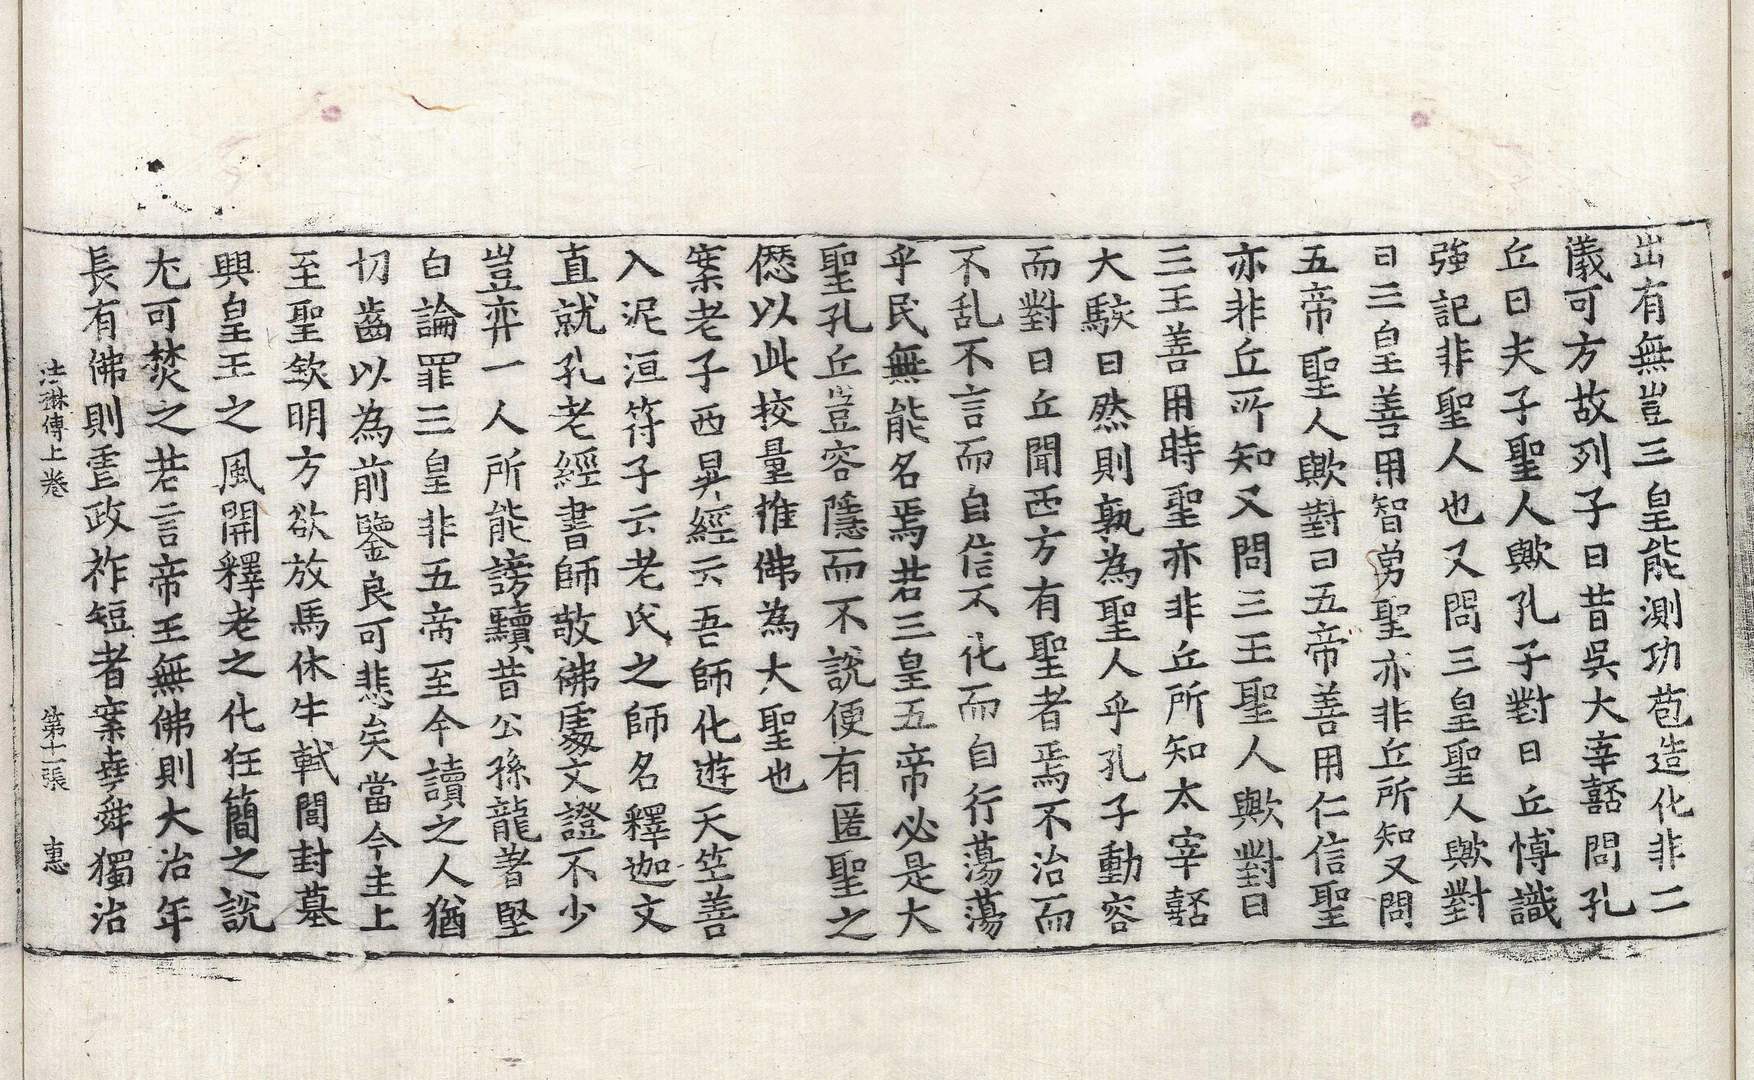 出有無豈三皇能測功苞造化非二
儀可方故列子曰昔吳大宰嚭問孔
丘曰夫子聖人歟孔子對曰丘愽識
強記非聖人也又問三皇聖人歟對
曰三皇善用智勇聖亦非丘所知又問
五帝聖人歟對曰五帝善用仁信聖
亦非丘所知又問三王聖人歟對曰
三王善用時聖亦非丘所知太宰嚭
大駭曰然則孰為聖人乎孔子動容
而對曰丘聞西方有聖者焉不治而
不乱不言而自信不化而自行蕩蕩
乎民無能名焉若三皇五帝必是大
聖孔丘豈容隱而不說便有匿聖之
愆以此挍量推佛為大聖也
案老子西昇經云吾師化遊天竺善
入泥洹符子云老氏之師名釋迦文
直就孔老經書師敬佛處文證不少
豈弈一人所能謗黷昔公孫龍著堅
白論罪三皇非五帝至今讀之人猶
切齒以為前鑒良可悲矣當今主上
至聖欽明方欲放馬休牛軾閭封墓
興皇王之風開釋老之化狂簡之說
尤可焚之若言帝王無佛則大治年
長有佛則虐政祚短者案堯舜獨治
法琳傳上卷 第十二張 惠